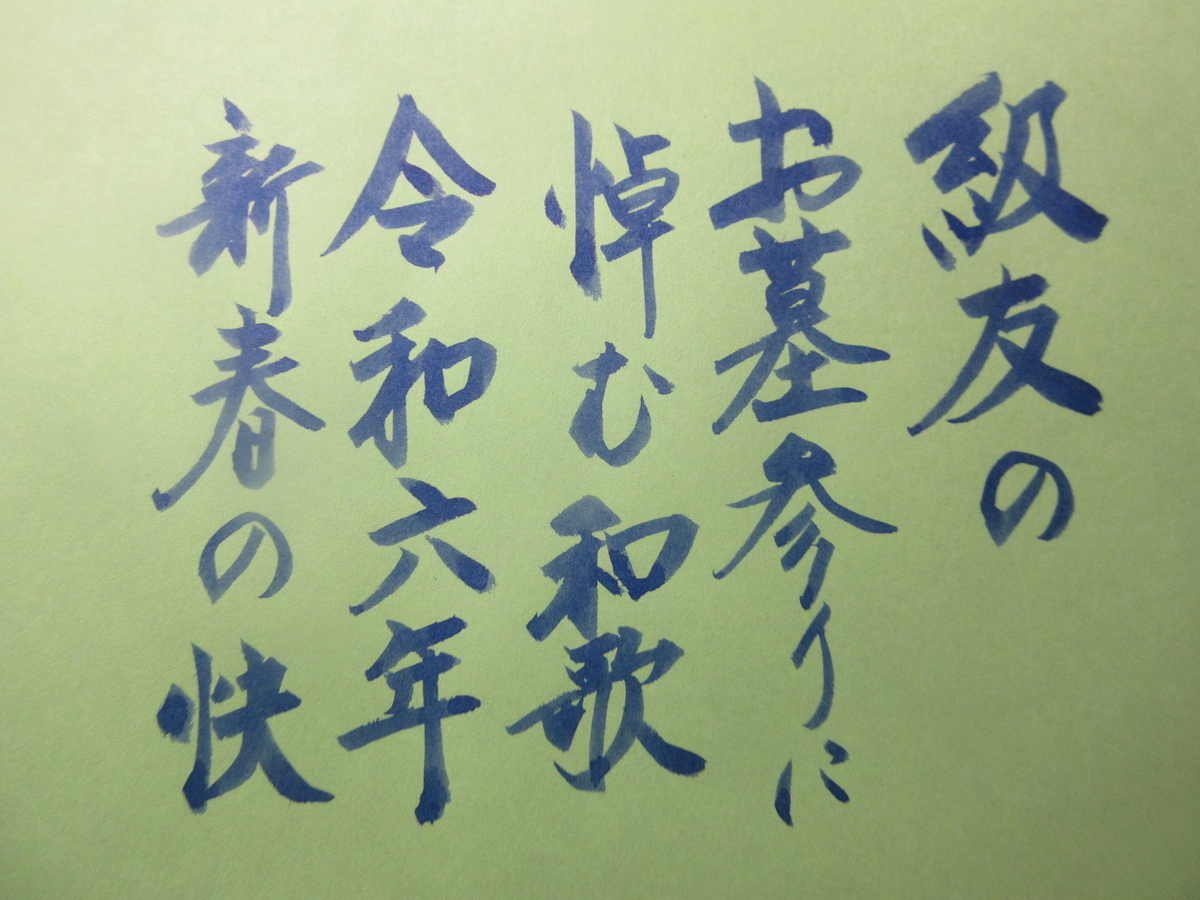 級友の
お墓参りに
悼む和歌
令和六年
新春の快